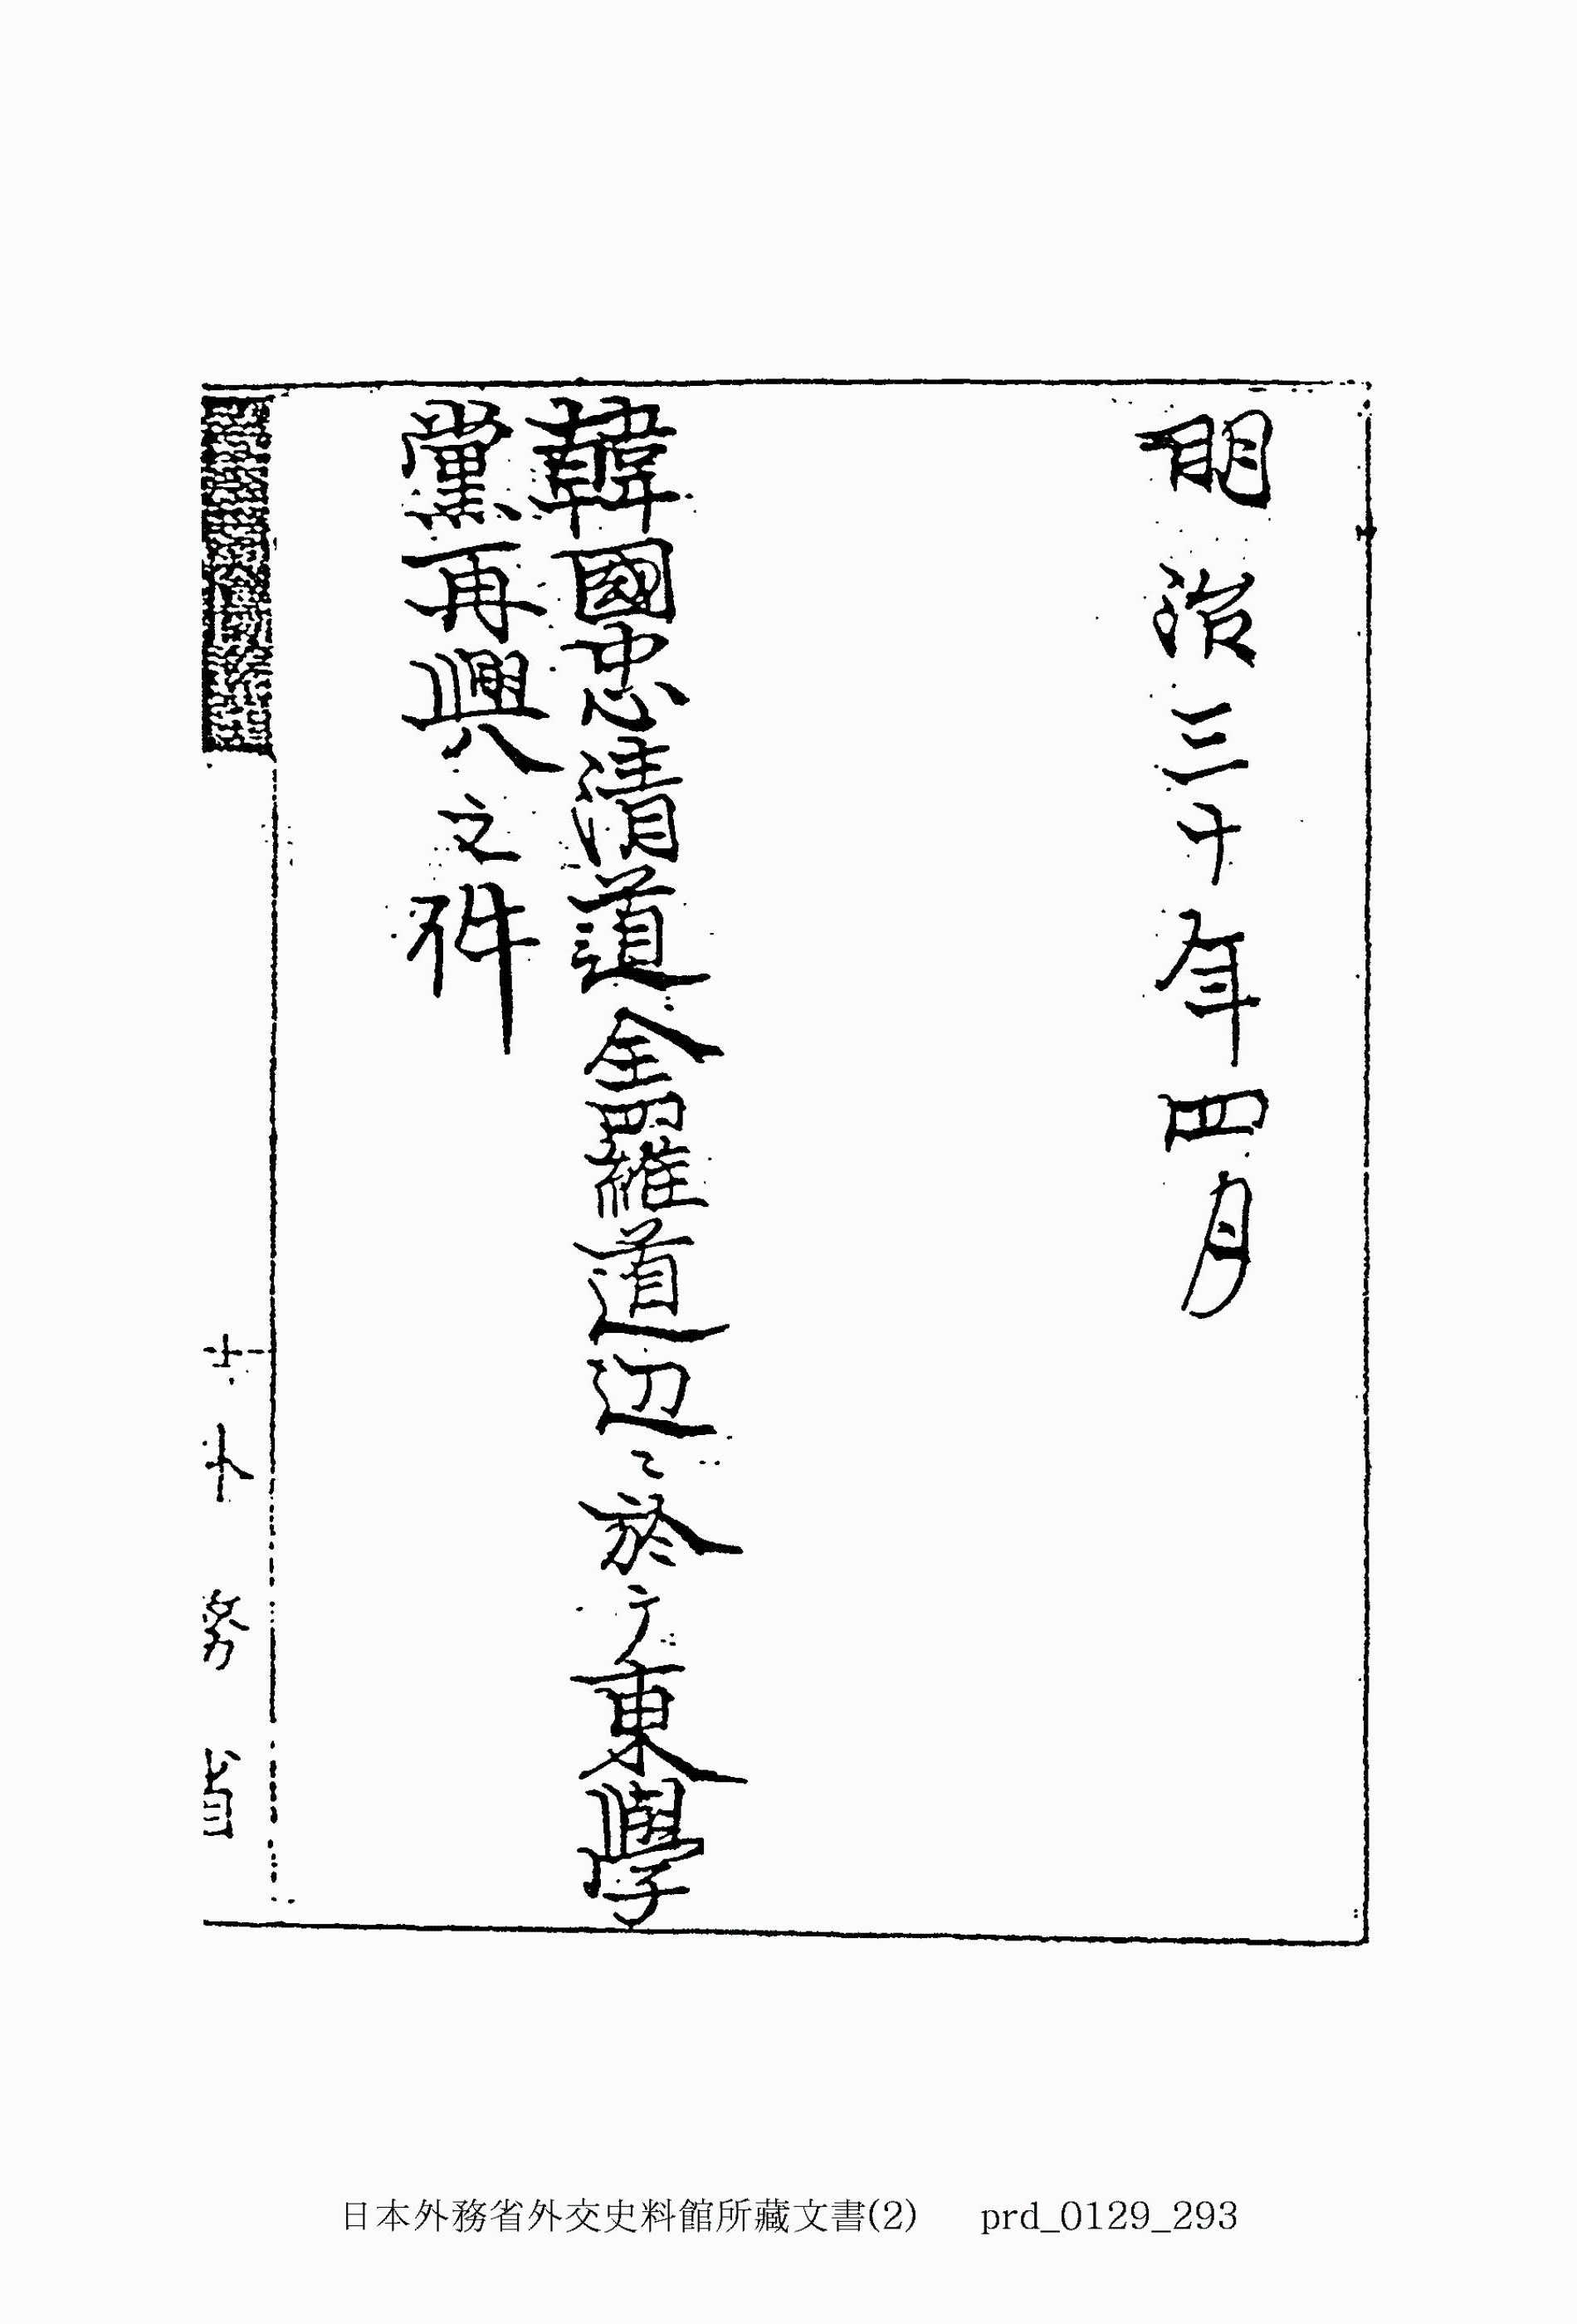 明治三十年四月
韓國忠清道全羅道辺ニ於テ東學
黨再興之件
務省
日本外務省外交史料館所藏文書(2) prd_0129_293